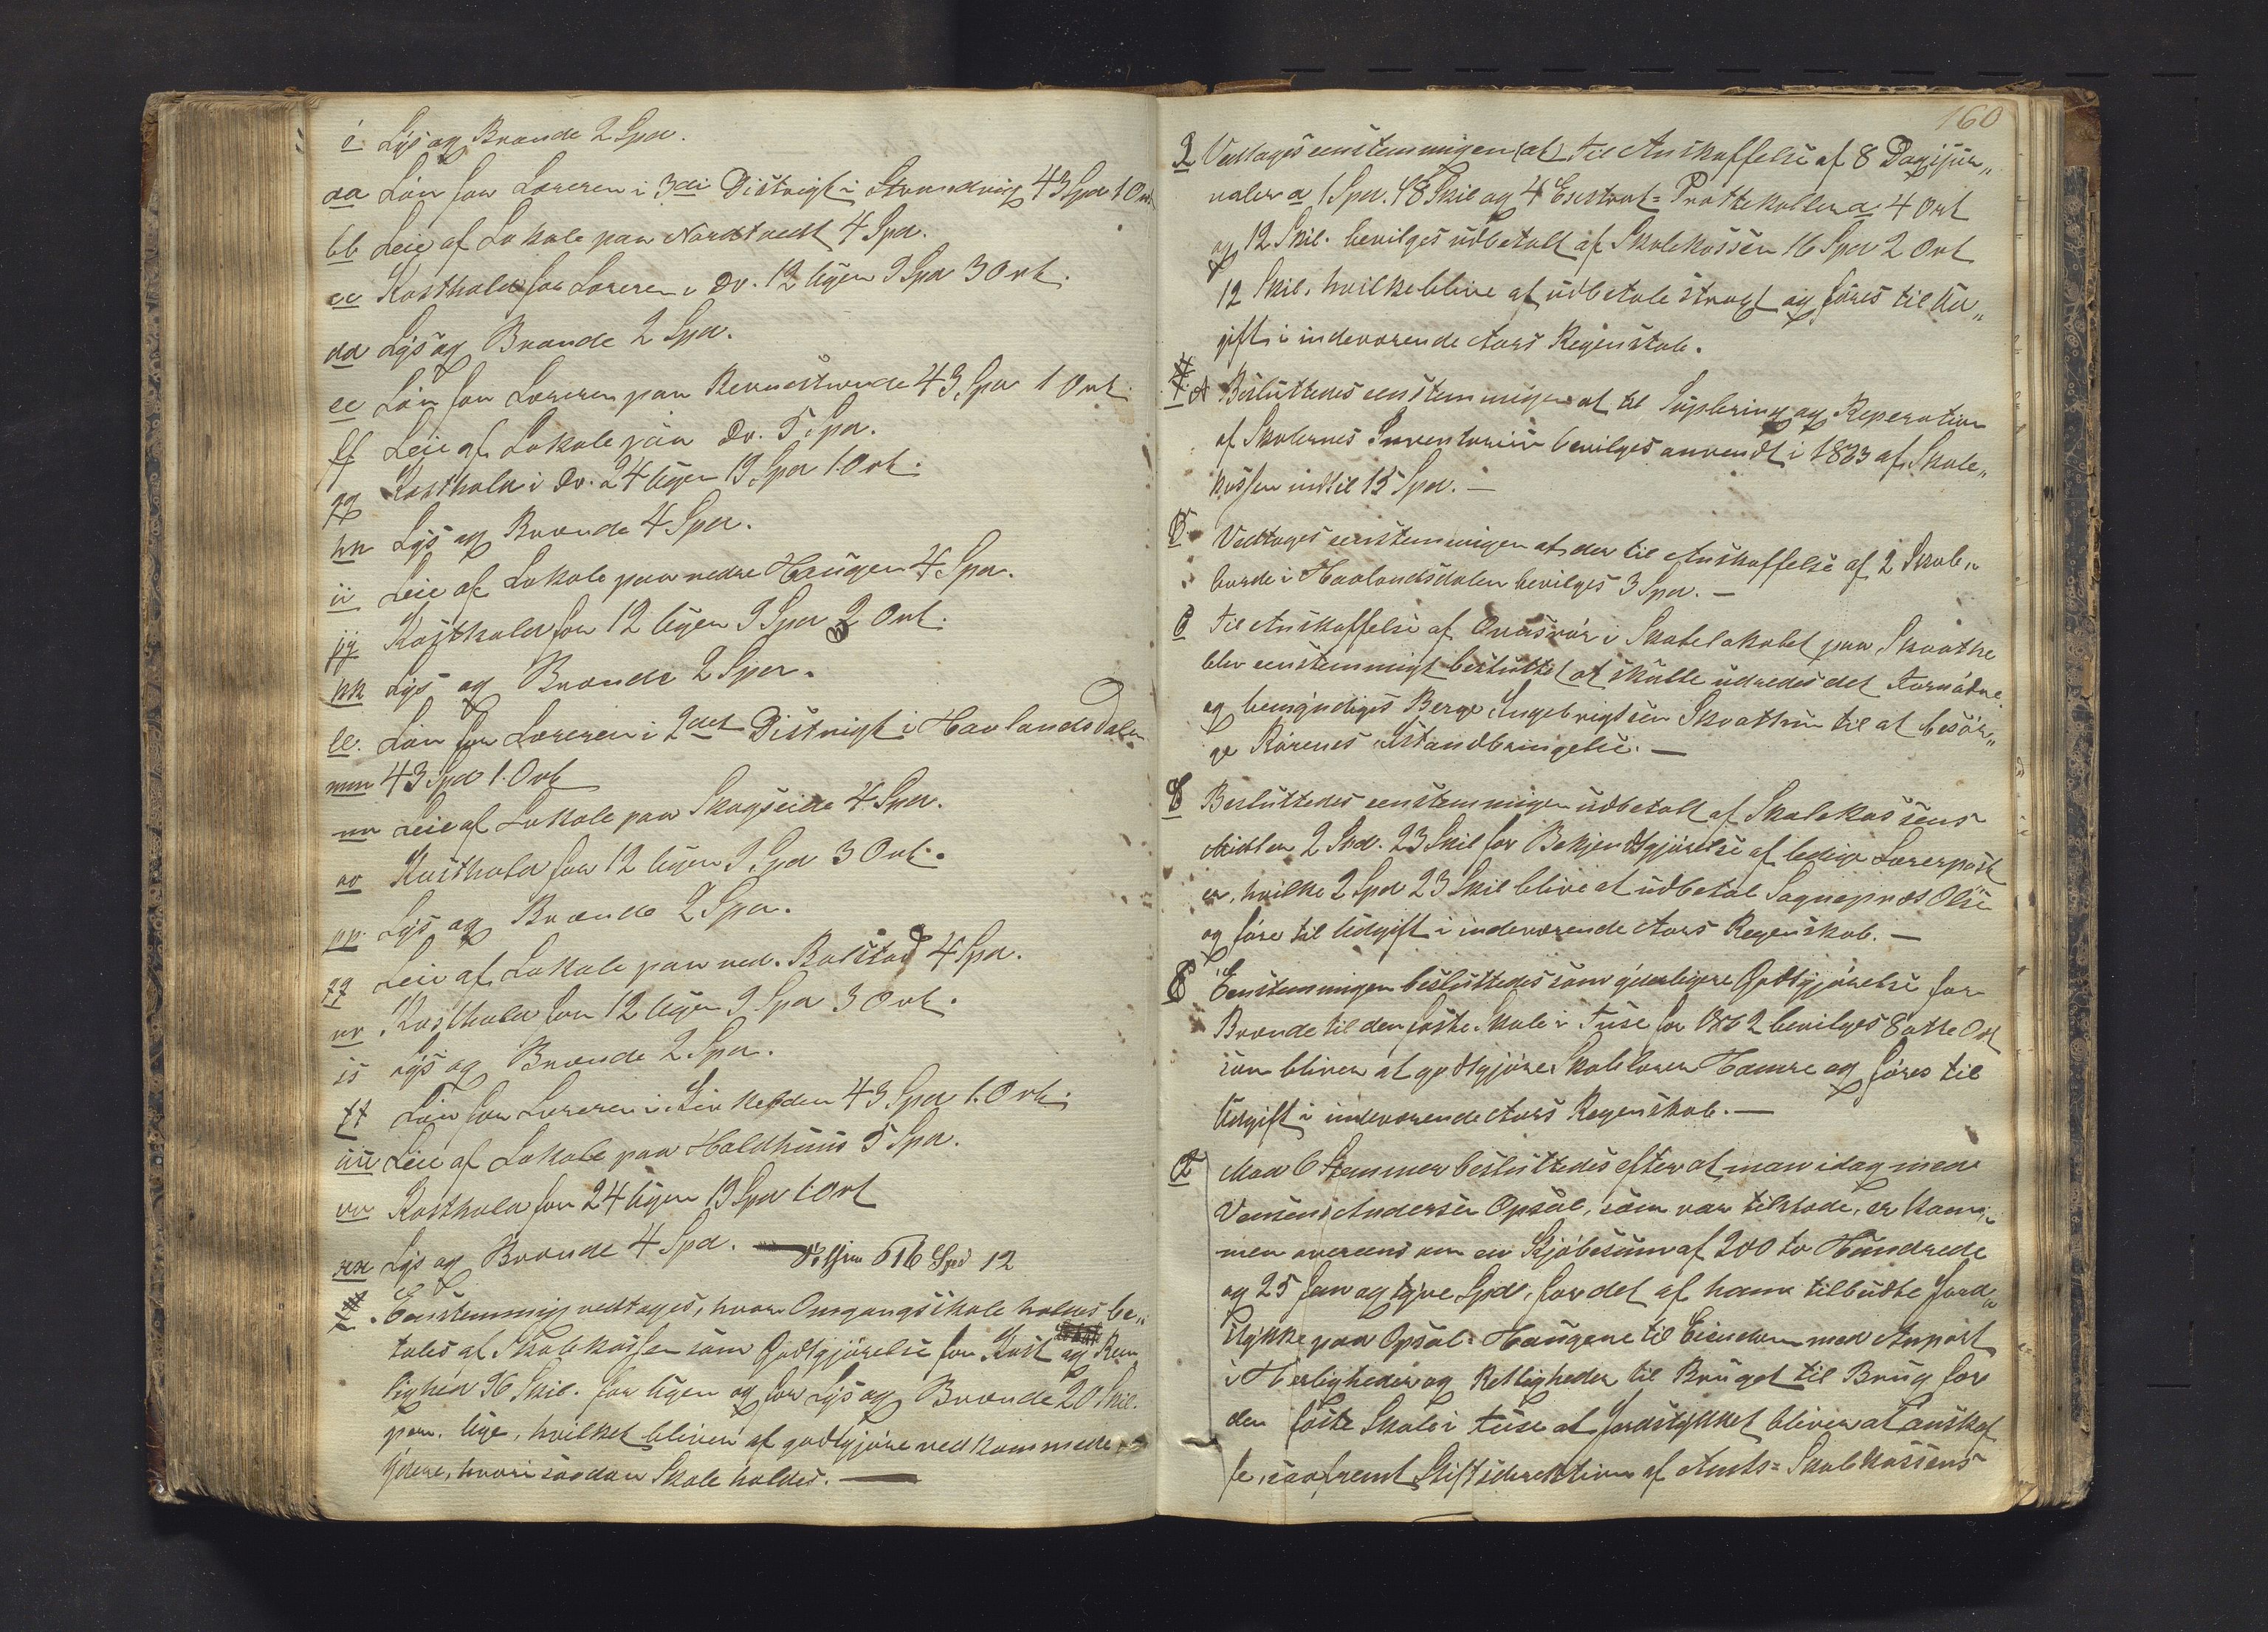 ö Lys og Brænde 2 Spd.
aa Løn for Læreren i 3die Distrigt i Strandvig 43 Spd 1 Ort
bb Leie af Lokale paa Nordtvedt 4 Spd.
cc Kosthold for Læreren i Do. 12 Uger 9 Spd 3 Ort.
dd Lys og Brænde 2 Spd.
ee Løn for Læreren paa Revnestrande 43 Spd 1 Ort.
ff Leie af Lokale paa Do. 5 Spd.
gg Kosthold i Do. 24 Uger 19 Spd 1 Ort.
hh Lys og Brænde 4 Spd.
ii Leie af Lokale paa nedre Haugen 4 Spd.
jj Kosthold for 12 Uger 9 Spd 2 Ort.
kk Lys og Brænde 2 Spd.
ll. Løn for Læreren i 2det Distrigt i Havlandsdalen
mm 43 Spd 1 Ort
nn Leie af Lokale paa Skogseide 4 Spd.
oo Kosthold for 12 Uger 9 Spd 3 Ort.
pp. Lys og Brænde 2 Spd.
qq Leie af Lokale paa ned. Bolstad 4 Spd.
rr Kosthold for 12 Uger 9 Spd 3 Ort.
ss Lys og Brænde 2 Spd.
tt Løn for Læreren i 43 Spd 1. Ort.
uu Leie af Lokale paa Holdhuus 5 Spd.
vv Kosthold for 24 Uger 19 Spd 1 Ort
xx Lys og Brænde 4 Spd. — 616 Spd 12
Eenstemmig vedtoges, hvor Omgangsskole holdes be„
tales af Skolekassen som Godtgjørelse for Kost og Ren
lighed 96 Skil. for Ugen og for Lys og Brænde 20 Skil.
pr. Uge, hvilket bliver at godtgjøre vedkommende
Ydere, hvori saadan Skole holdes. —
160
2 Vedtoges eenstemmigen (at) til Anskaffelse af 8 Dagsjur„
naler a 1 Spd. 48 Skil og 4 Exstrat= Prottekoller a 4 Ort
og 12 Skil. bevilges udbetalt af Skolekassen 16 Spd 2 Ort
12 Skil, hvilke blive at udbetale stragt og føres til Ud„
gift i indeværende Aars Regenskab.
A Besluttedes eenstemmigen at til Suplering og Reperation
af Skolernes Inventarium bevilges anvendt i 1863 af Skole„
kassen indtil 15 Spd. —
Vedtoges eenstemmigen at der til Anskaffelse af 2 Skole„
borde i Havlandsdalen bevilges 3 Spd. —
C Til Anskaffelse af Ovnsrør i Skolelokalet paa Skaathe
blev eenstemmigt besluttet at skulle udredes det Fornødne,
og bemyndiges Berge Ingebrigtsen Skaathun til at besør„
ge Rørenes Istandbringelse. —
Besluttedes eenstemmigen udbetalt af Skolekassens
Midler 2 Spd. 23 Skil for Bekjendtgjørelse af ledige Lærerpost
er, hvilke 2 Spd 23 Skil blive at udbetal Sognepræst Olse
og føre til Udgift i indeværende Aars Regenskab. —
E Eenstemmigen besluttedes som yderligere Godtgjørelse for
Brænde til den faste Skole i Fuse for 1862 bevilges 8 otte Ort
som bliver at godtgjøre Skolelærer Hamre og føres til
Udgift i indeværende Aars Regenskab. —
Mod 6 Stemmer besluttedes efter at man idag med
Andersen Opsal, som var tilstede, er kom„
men overeens om en Kjøbesum af 200 to Hundrede
og 25 fem og tyve Spd, for det af ham tilbudte Jord„
stykke paa Opsal= Haugene til Eiendom med Anpart
i Herligheder og Rettigheder til Bruget til Brug for
den faste Skole i Fuse at Jordstykket bliver at anskaf
fe, saafremt Stiftsdirektion af Amts= Skolekassens